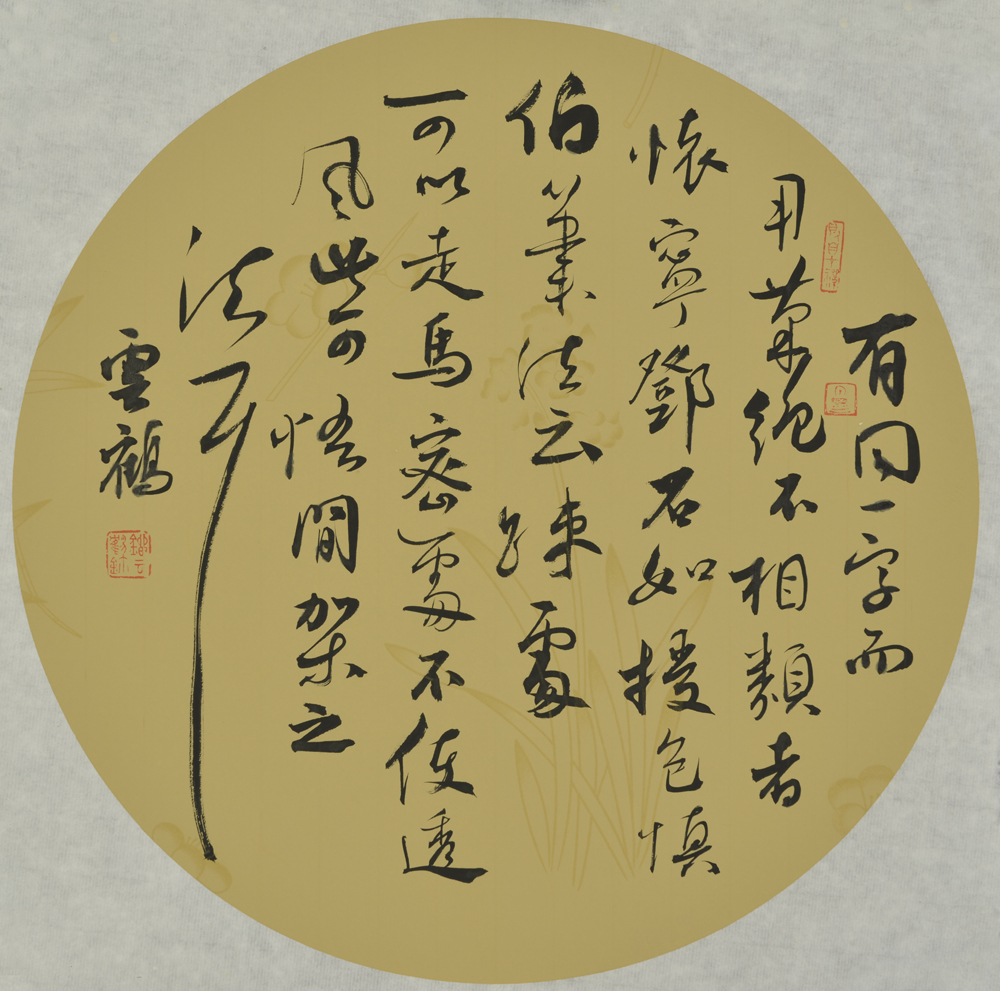 有同一字而
用筆絕不相類者
懷寧鄧石如授包慎
伯筆法云疎處
可以走馬密處不使透
風此可悟間架之
法耳
雲鶴